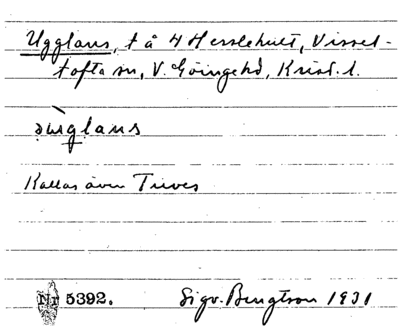 Ugglans, t å 4 Hesslehult, Vissel-
tofta sn, V. Göingehd, Krist. l.
Kallas även Tuves
Nr 5392. Sigv. Bengtson 1931